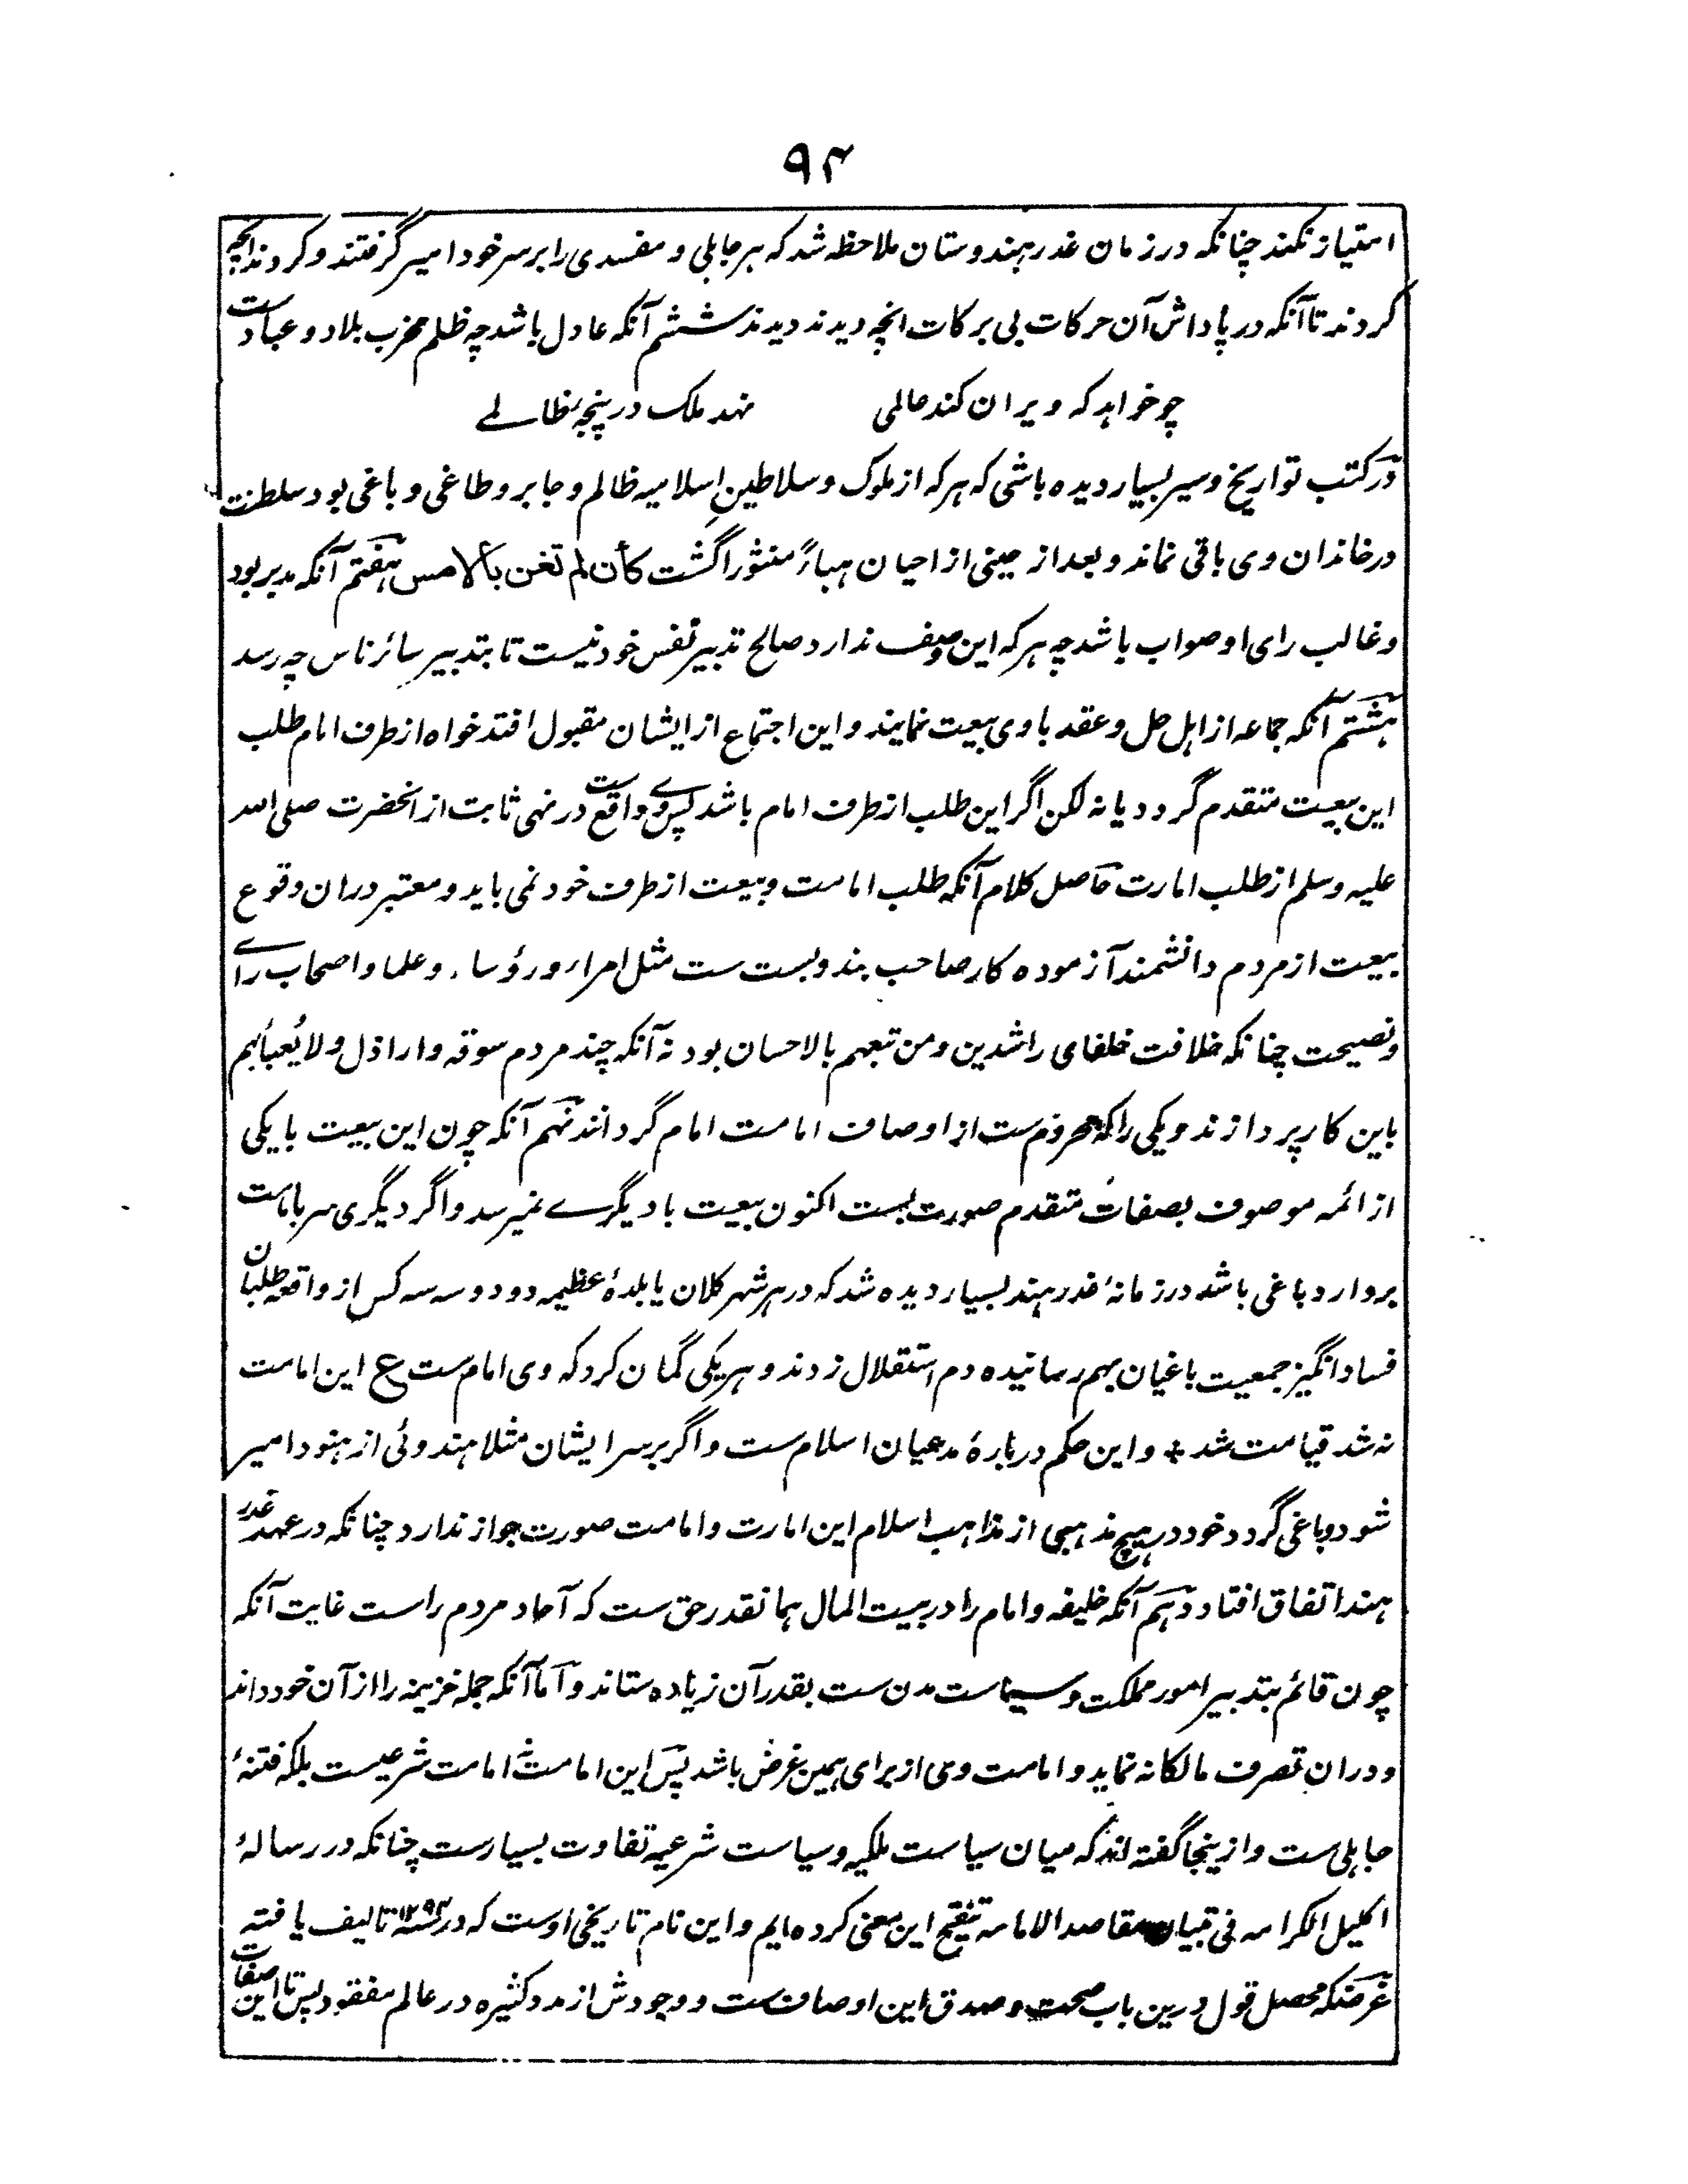 ۹۴
امتیاز نکنند چنانکه در زمان غدر ہندوستان ملاحظہ شد کہ ہر جاہلی و مفسدی را بر سر خود امیر گرفتند و کردند انچہ
کردند تا آنکہ در پاداش آن حرکات بی برکات انچہ دیدند دیدند ششم آنکہ عادل باشد چہ ظلم مخرب بلاد و عبادست
چو خواہد کہ ویران کند عالمی نہد ملک در پنجۂ ظالمے
در کتب تواریخ و سیر بسیار دیدہ باشی کہ ہر کہ از ملوک و سلاطین اسلامیہ ظالم و جابر و طاغی و باغی بود سلطنت
در خاندان وی باقی نماند و بعد از حینی از احیان ہباءً منثورا گشت کأن لم تغن بألامس ہفتم آنکہ مدبر بود
و غالب رای او صواب باشد چہ ہر کہ این وصف ندارد صالح تدبیر نفس خود نیست تا بتدبیر سائر ناس چہ رسد
ہشتم آنکہ جماعہ از اہل حل و عقد با وی بیعت نمایند و این اجتماع از ایشان مقبول افتد خواہ از طرف امام طلب
این بیعت متقدم گردد یا نہ لکن اگر این طلب از طرف امام باشد پس وے واقع ست در نہی ثابت از انحضرت صلی اللہ
علیہ وسلم از طلب امارت حاصل کلام آنکہ طلب امامت و بیعت از طرف خود نمی باید و معتبر دران وقوع
بیعت از مردم دانشمند آزمودہ کار صاحب بندوبست ست مثل امراء و رؤساء و علما و اصحاب راے
و نصیحت چنانکہ خلافت خلفای راشدین و من تبعہم بالاحسان بود نہ آنکہ چند مردم سوقہ و اراذل ولا یُعبأ بہم
باین کار پردازند و یکی را کہ محروم ست از اوصاف امامت امام گردانند نہم آنکہ چون این بیعت با یکی
از ائمہ موصوف بصفات متقدم صورت بست اکنون بیعت با دیگرے نمیرسد و اگر دیگری سر بامامت
بردارد باغی باشد در زمانۂ غدر ہند بسیار دیدہ شد کہ در ہر شہر کلان یا بلدۂ عظیمہ دو دو سہ سہ کس از واقعہ طلبان
فساد انگیز جمعیت باغیان بہم رسانیدہ دم استقلال زدند و ہر یکی گمان کرد کہ وی امام ست ع این امامت
نہ شد قیامت شد ٭ و این حکم دربارۂ مدعیان اسلام ست و اگر بر سر ایشان مثلا ہندوئی از ہنود امیر
شود و باغی گردد خود در ہیچ مذہبی از مذاہب اسلام این امارت و امامت صورت جواز ندارد چنانکہ در عہد غدر
ہند اتفاق افتاد دہم آنکہ خلیفہ و امام را در بیت المال ہمانقدر حق ست کہ آحاد مردم راست غایت آنکہ
چون قائم بتدبیر امور مملکت و سیاست مدن ست بقدر آن زیادہ ستاند و اما آنکہ جملہ خزینہ را از آن خود داند
و دران تصرف مالکانہ نماید و امامت وی از برای ہمین غرض باشد پس این امامت امامت شرعیست بلکہ فتنۂ
جاہلی ست و ازینجا گفتہ اند کہ میان سیاست ملکیہ و سیاست شرعیہ تفاوت بسیارست چنانکہ در رسالۂ
اکلیل الکرامہ فی تبیان مقاصد الامامہ تنقیح این معنی کردہ ایم و این نام تاریخی اوست کہ در سنہ ۱۲۹۴ تالیف یافتہ
غرضکہ محصل قول درین باب صحت و صدق این اوصاف ست و وجودش از مدد کثیرہ در عالم مفقود پس تا این صفات